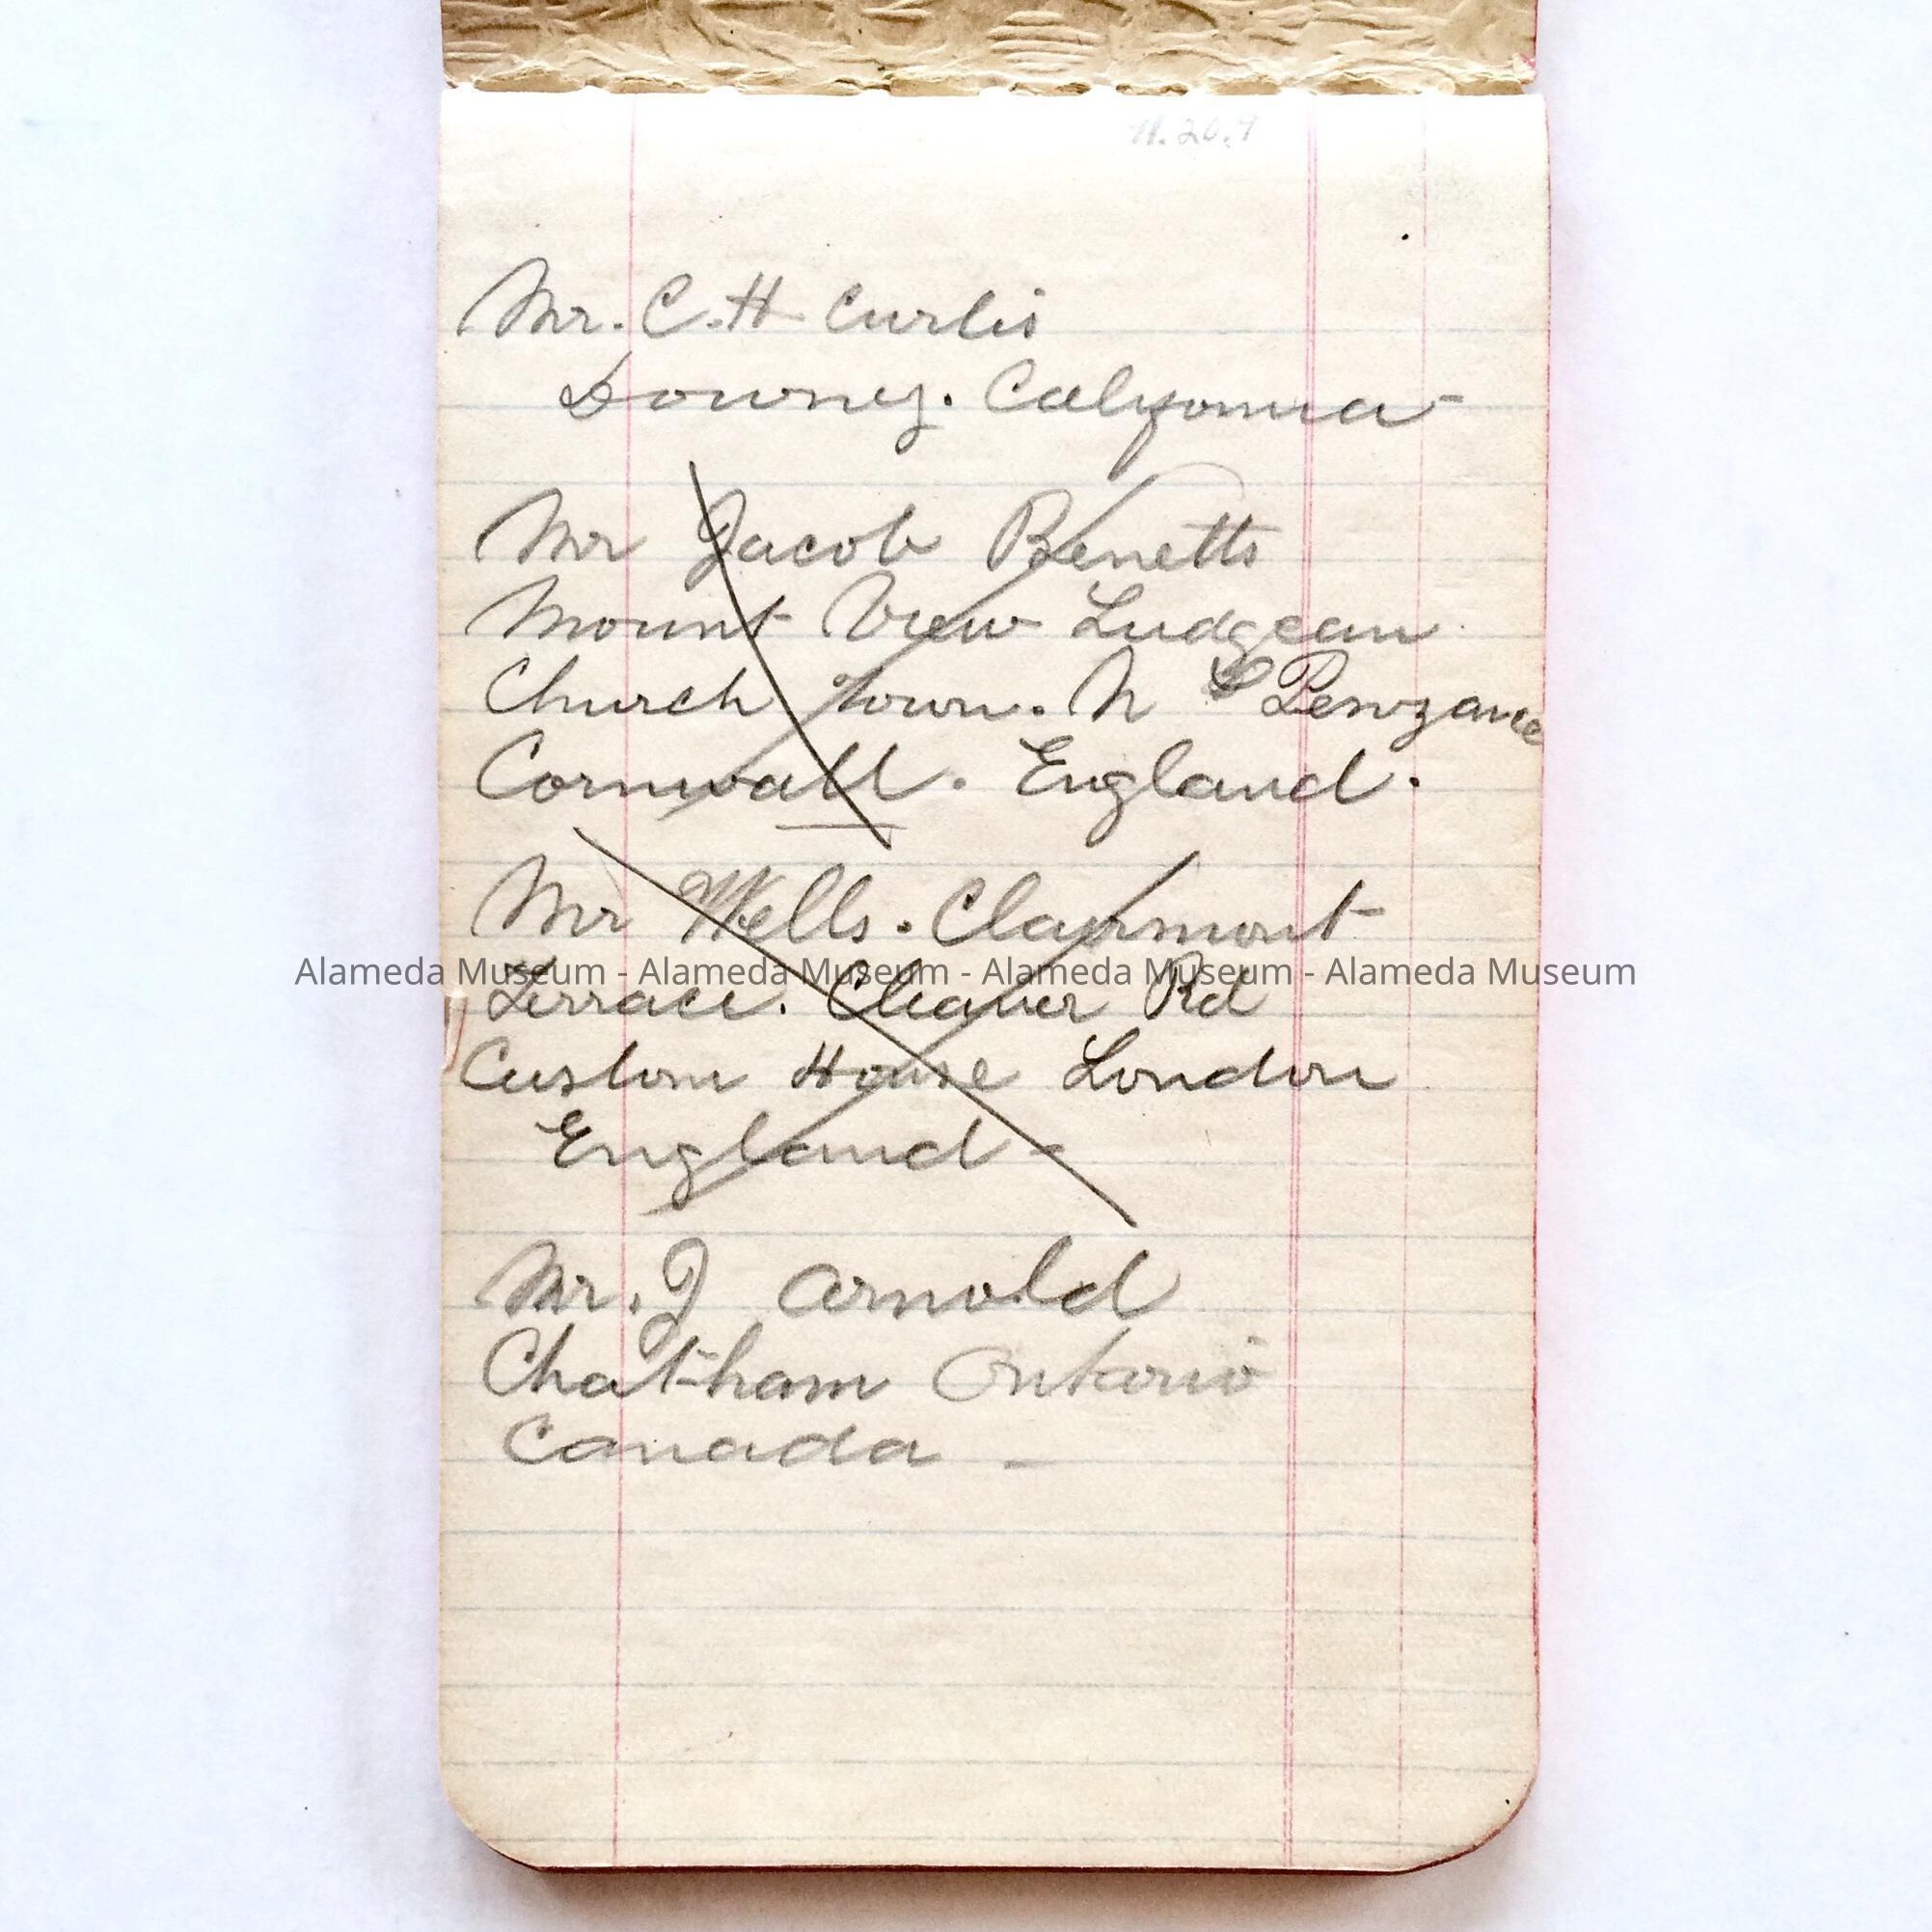 Mr. C. H Curtis
Downey. California
Mr Jacob Benetts
Mount View Ludgean
Church Town. N Penzance
Cornwall. England.
Mr Wells. Clairmont
Terrace. Cleaver Rd
Custom House London
England -
Alameda Museum - Alameda Museum - Alameda Museum - Alameda Museum
Mr. J Arnold
Chatham Ontario
Canada -